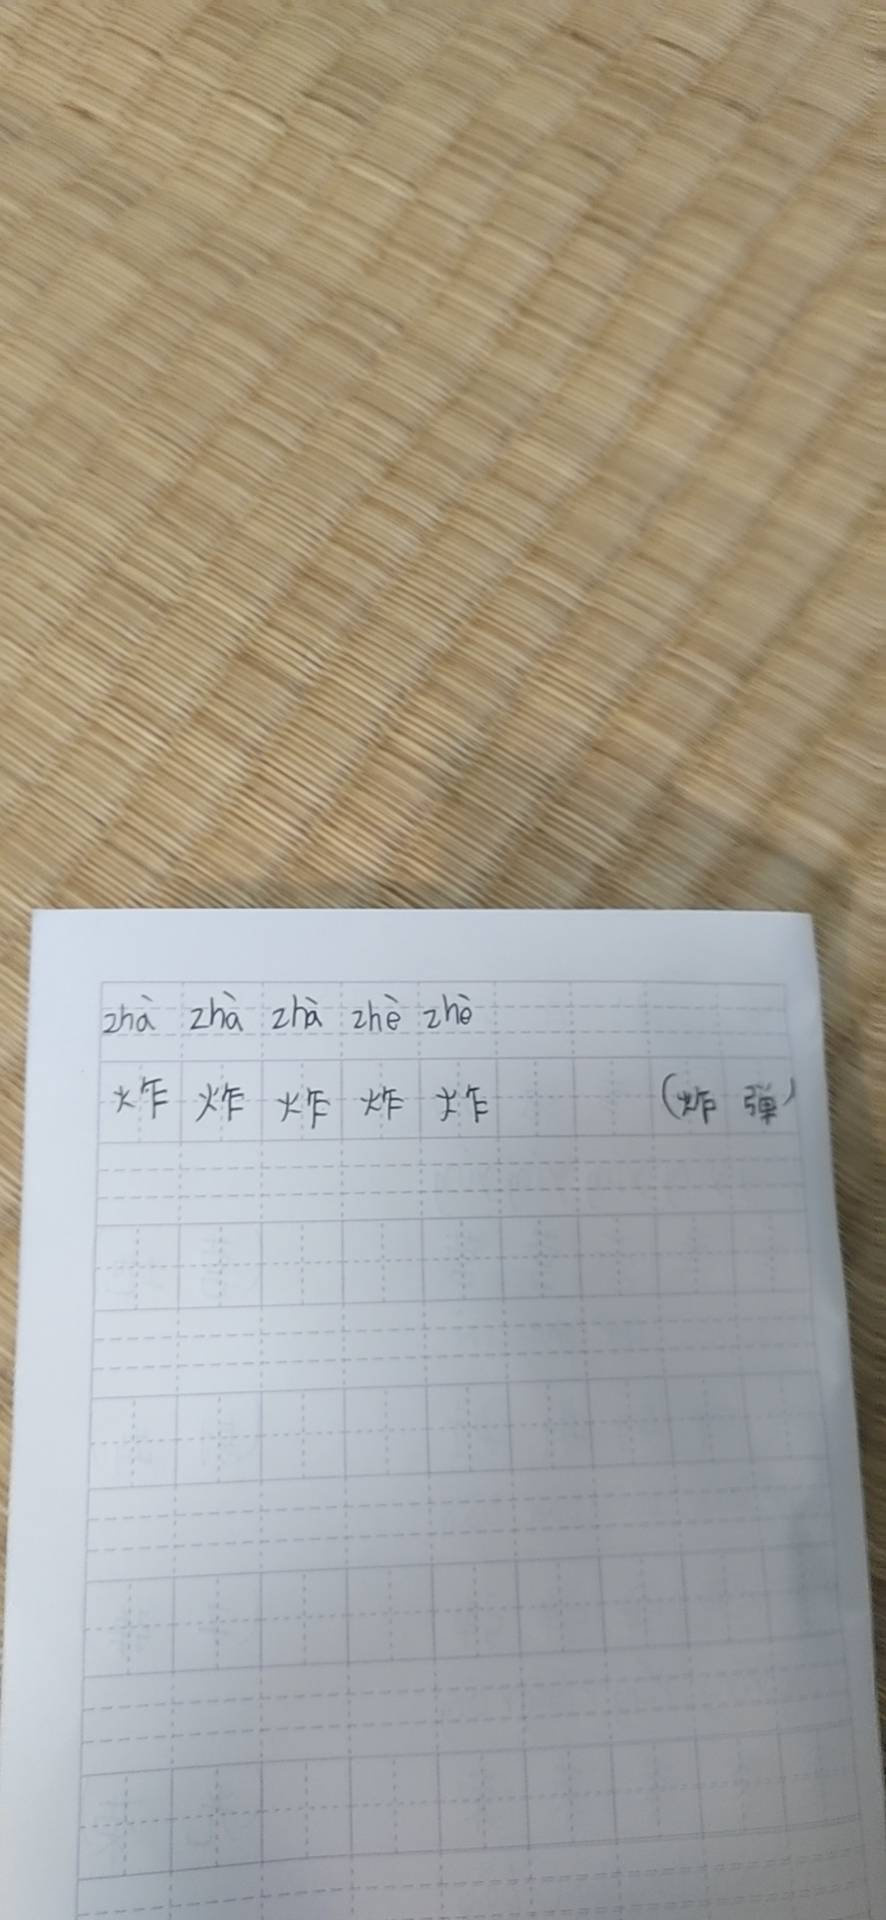 zhà zhà zhà zhè zhè
炸 炸 炸 炸 炸 (炸 弹)